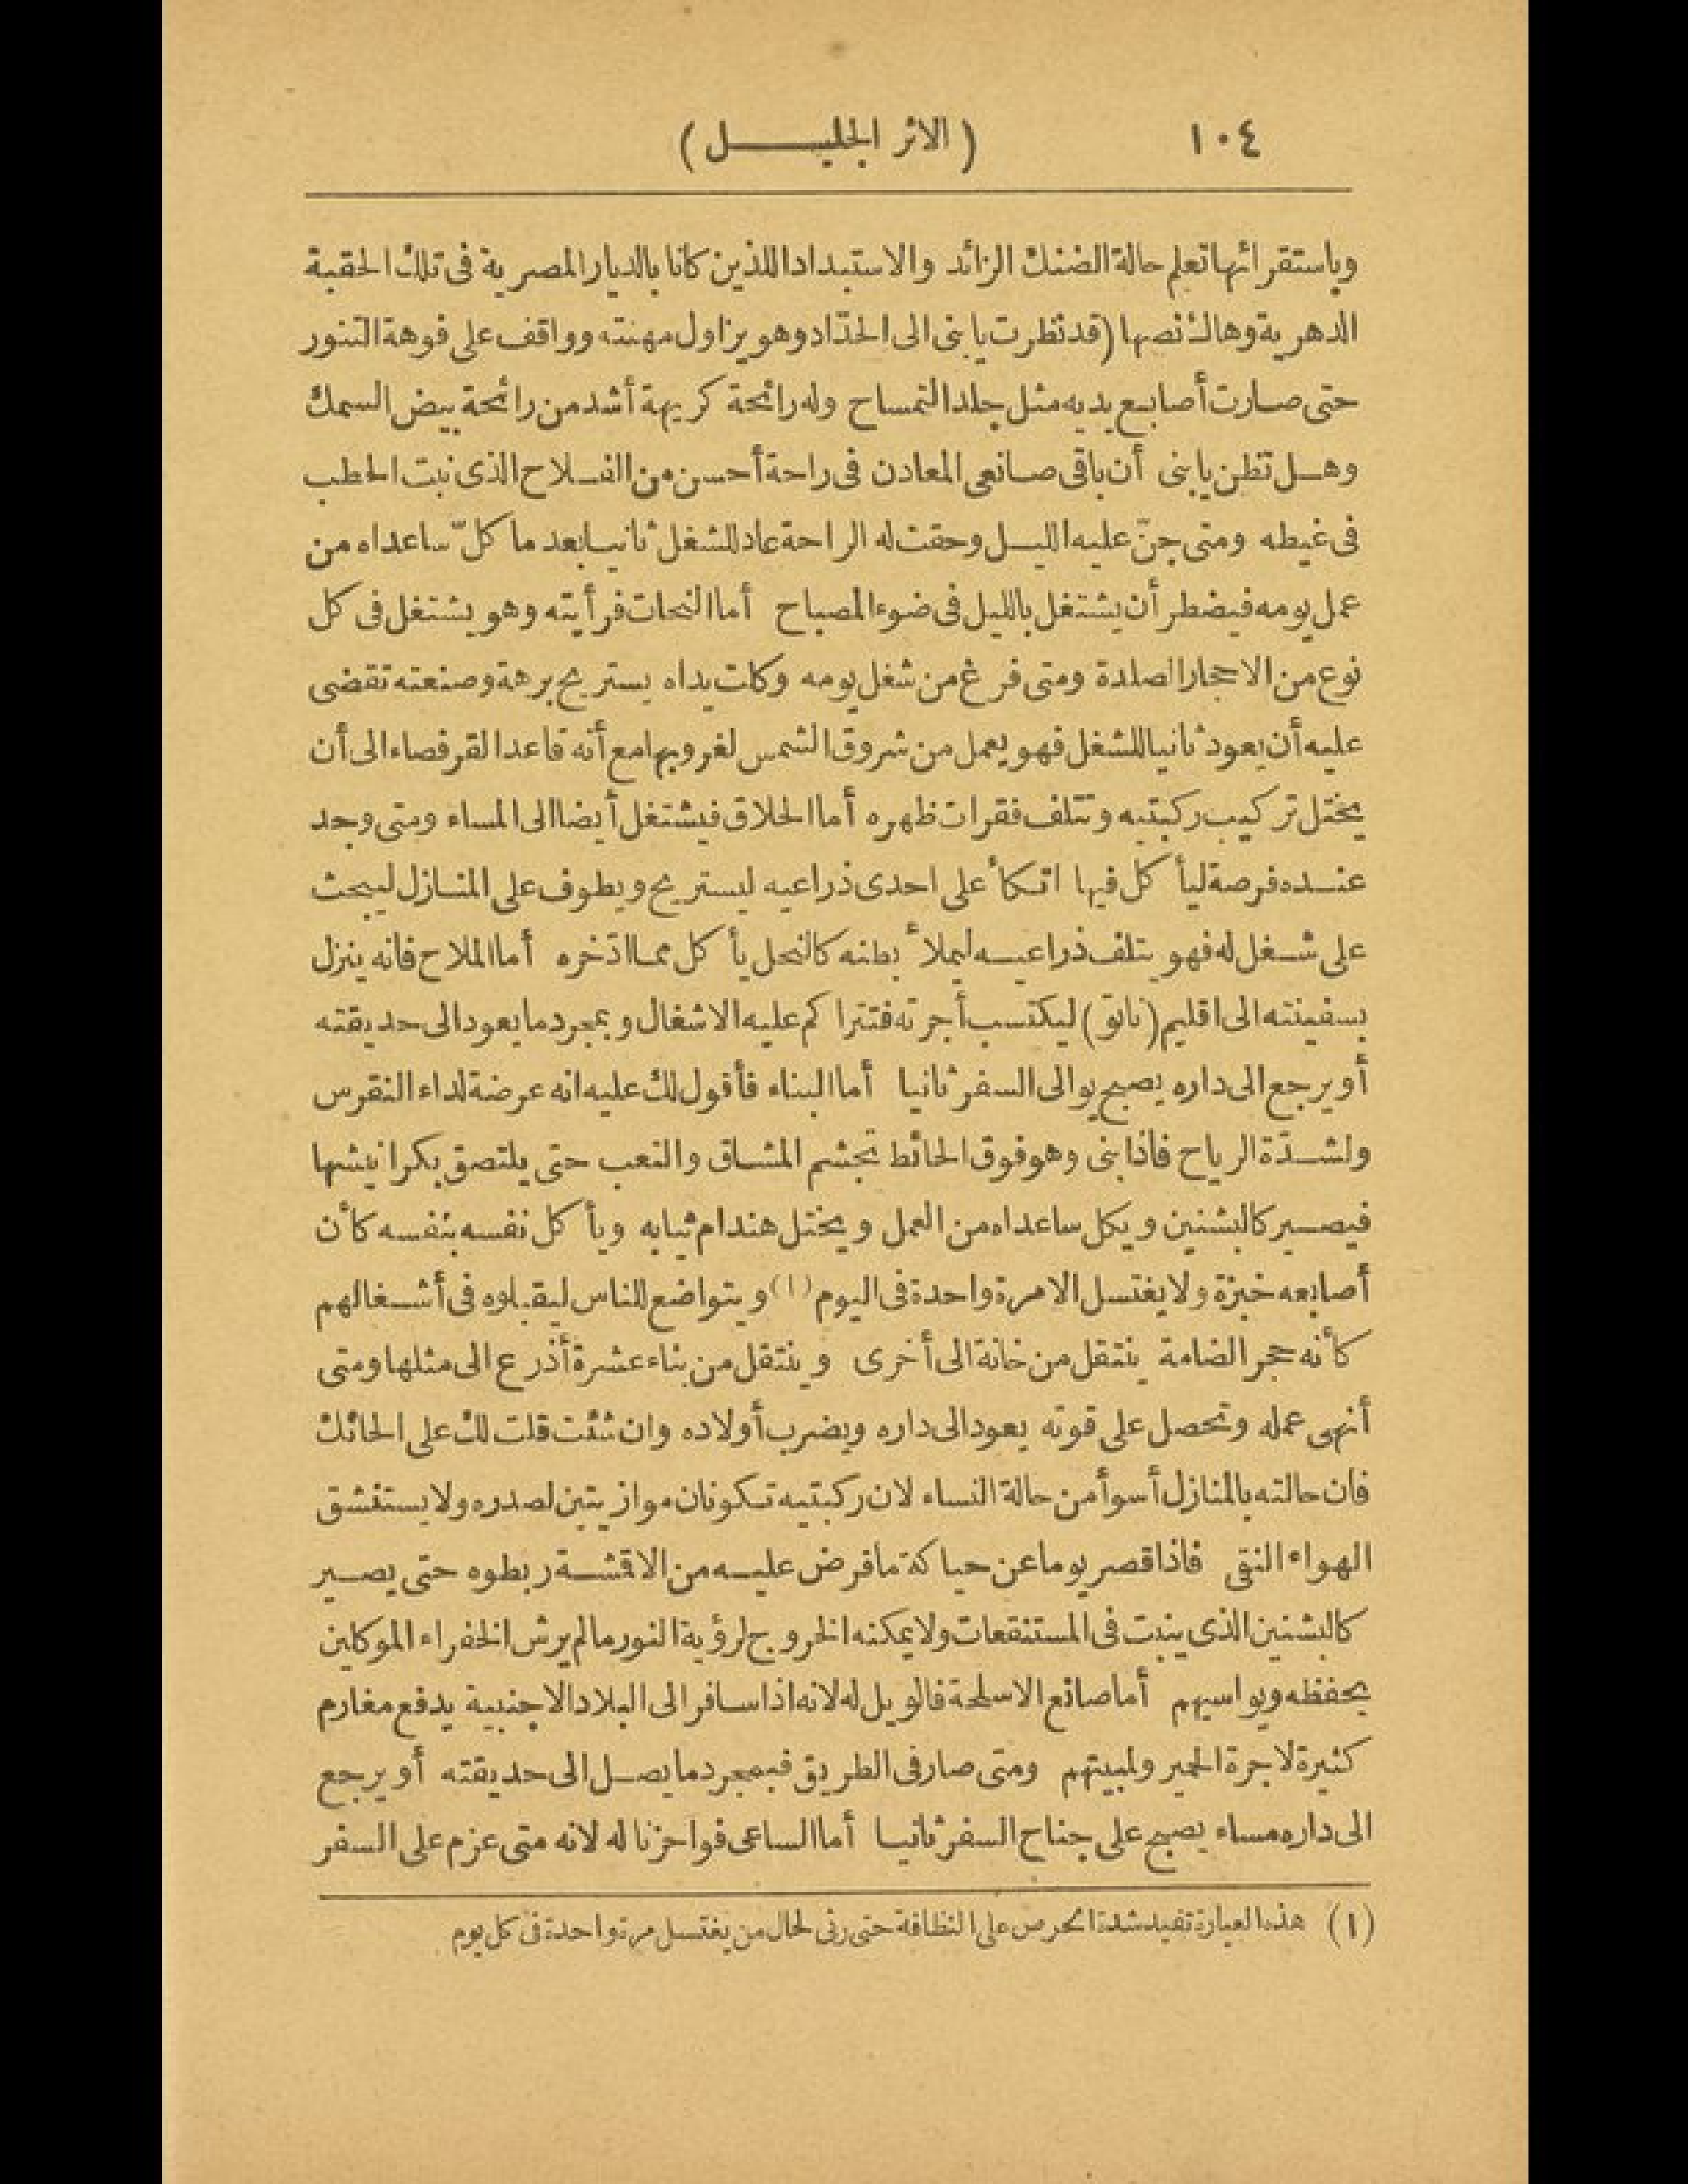 ١٠٤
( الاثر الجليــــــل )
وباستقرائها تعلم حالة الضنك الزائد والاستبداد اللذين كانا بالديار المصرية فى تلك الحقبة
الدهرية وهاك نصها (قد نظرت يا بنى الى الحدّاد وهو يزاول مهنته وواقف على فوهة التنور
حتى صارت أصابع يديه مثل جلد التمساح وله رائحة كريهة أشد من رائحة بيض السمك
وهل تظن يا بنى أن باقى صانعى المعادن فى راحة أحسن من الفلاح الذى نبت الحطب
فى غيطه ومتى جنّ عليه الليل وحقت له الراحة عاد للشغل ثانيا بعد ما كلّ ساعداه من
عمل يومه فيضطر أن يشتغل بالليل فى ضوء المصباح أما النحات فرأيته وهو يشتغل فى كل
نوع من الاحجار الصلدة ومتى فرغ من شغل يومه وكلت يداه يستريح برهة وصنعته تقضى
عليه أن يعود ثانيا للشغل فهو يعمل من شروق الشمس لغروبها مع أنه قاعد القرفصاء الى أن
يختل تركيب ركبتيه وتتلف فقرات ظهره أما الحلاق فيشتغل أيضا الى المساء ومتى وجد
عنده فرصة ليأكل فيها اتكأ على احدى ذراعيه ليستريح ويطوف على المنازل ليبحث
على شغل له فهو يتلف ذراعيه ليملأ بطنه كالنحل يأكل مما ادّخره أما الملاح فانه ينزل
بسفينته الى اقليم (ناتق) ليكتسب أجرته فتتراكم عليه الاشغال وبمجرد ما يعود الى حديقته
أو يرجع الى داره يصبح يوالى السفر ثانيا أما البناء فأقول لك عليه انه عرضة لداء النقرس
ولشدّة الرياح فاذا بنى وهو فوق الحائط تجشم المشاق والتعب حتى يلتصق بكرانيشها
فيصير كالبشنين ويكل ساعداه من العمل ويختل هندام ثيابه ويأكل نفسه بنفسه كأن
أصابعه خبزة ولا يغتسل الا مرة واحدة فى اليوم (١) ويتواضع للناس ليقبلوه فى أشغالهم
كأنه حجر الضامة ينتقل من خانة الى أخرى وينتقل من بناء عشرة أذرع الى مثلها ومتى
أنهى عمله وتحصل على قوته يعود الى داره ويضرب أولاده وان شئت قلت لك على الحائك
فان حالته بالمنازل أسوأ من حالة النساء لان ركبتيه تكونان موازيتين لصدره ولا يستنشق
الهواء النقى فاذا قصر يوما عن حياكة ما فرض عليه من الاقشة ربطوه حتى يصير
كالبشنين الذى ينبت فى المستنقعات ولا يمكنه الخروج لرؤية النور ما لم يرش الخفراء الموكلين
بحفظه ويواسيهم أما صانع الاسلحة فالويل له لانه اذا سافر الى البلاد الاجنبية يدفع مغارم
كثيرة لاجرة الحمير ولمبيتهم ومتى صار فى الطريق فبمجرد ما يصل الى حديقته أو يرجع
الى داره مساء يصبح على جناح السفر ثانيا أما الساعى فواحزنا له لانه متى عزم على السفر
(١) هذه العبارة تفيد شدة الحرص على النظافة حتى رثى لحال من يغتسل مرة واحدة فى كل يوم